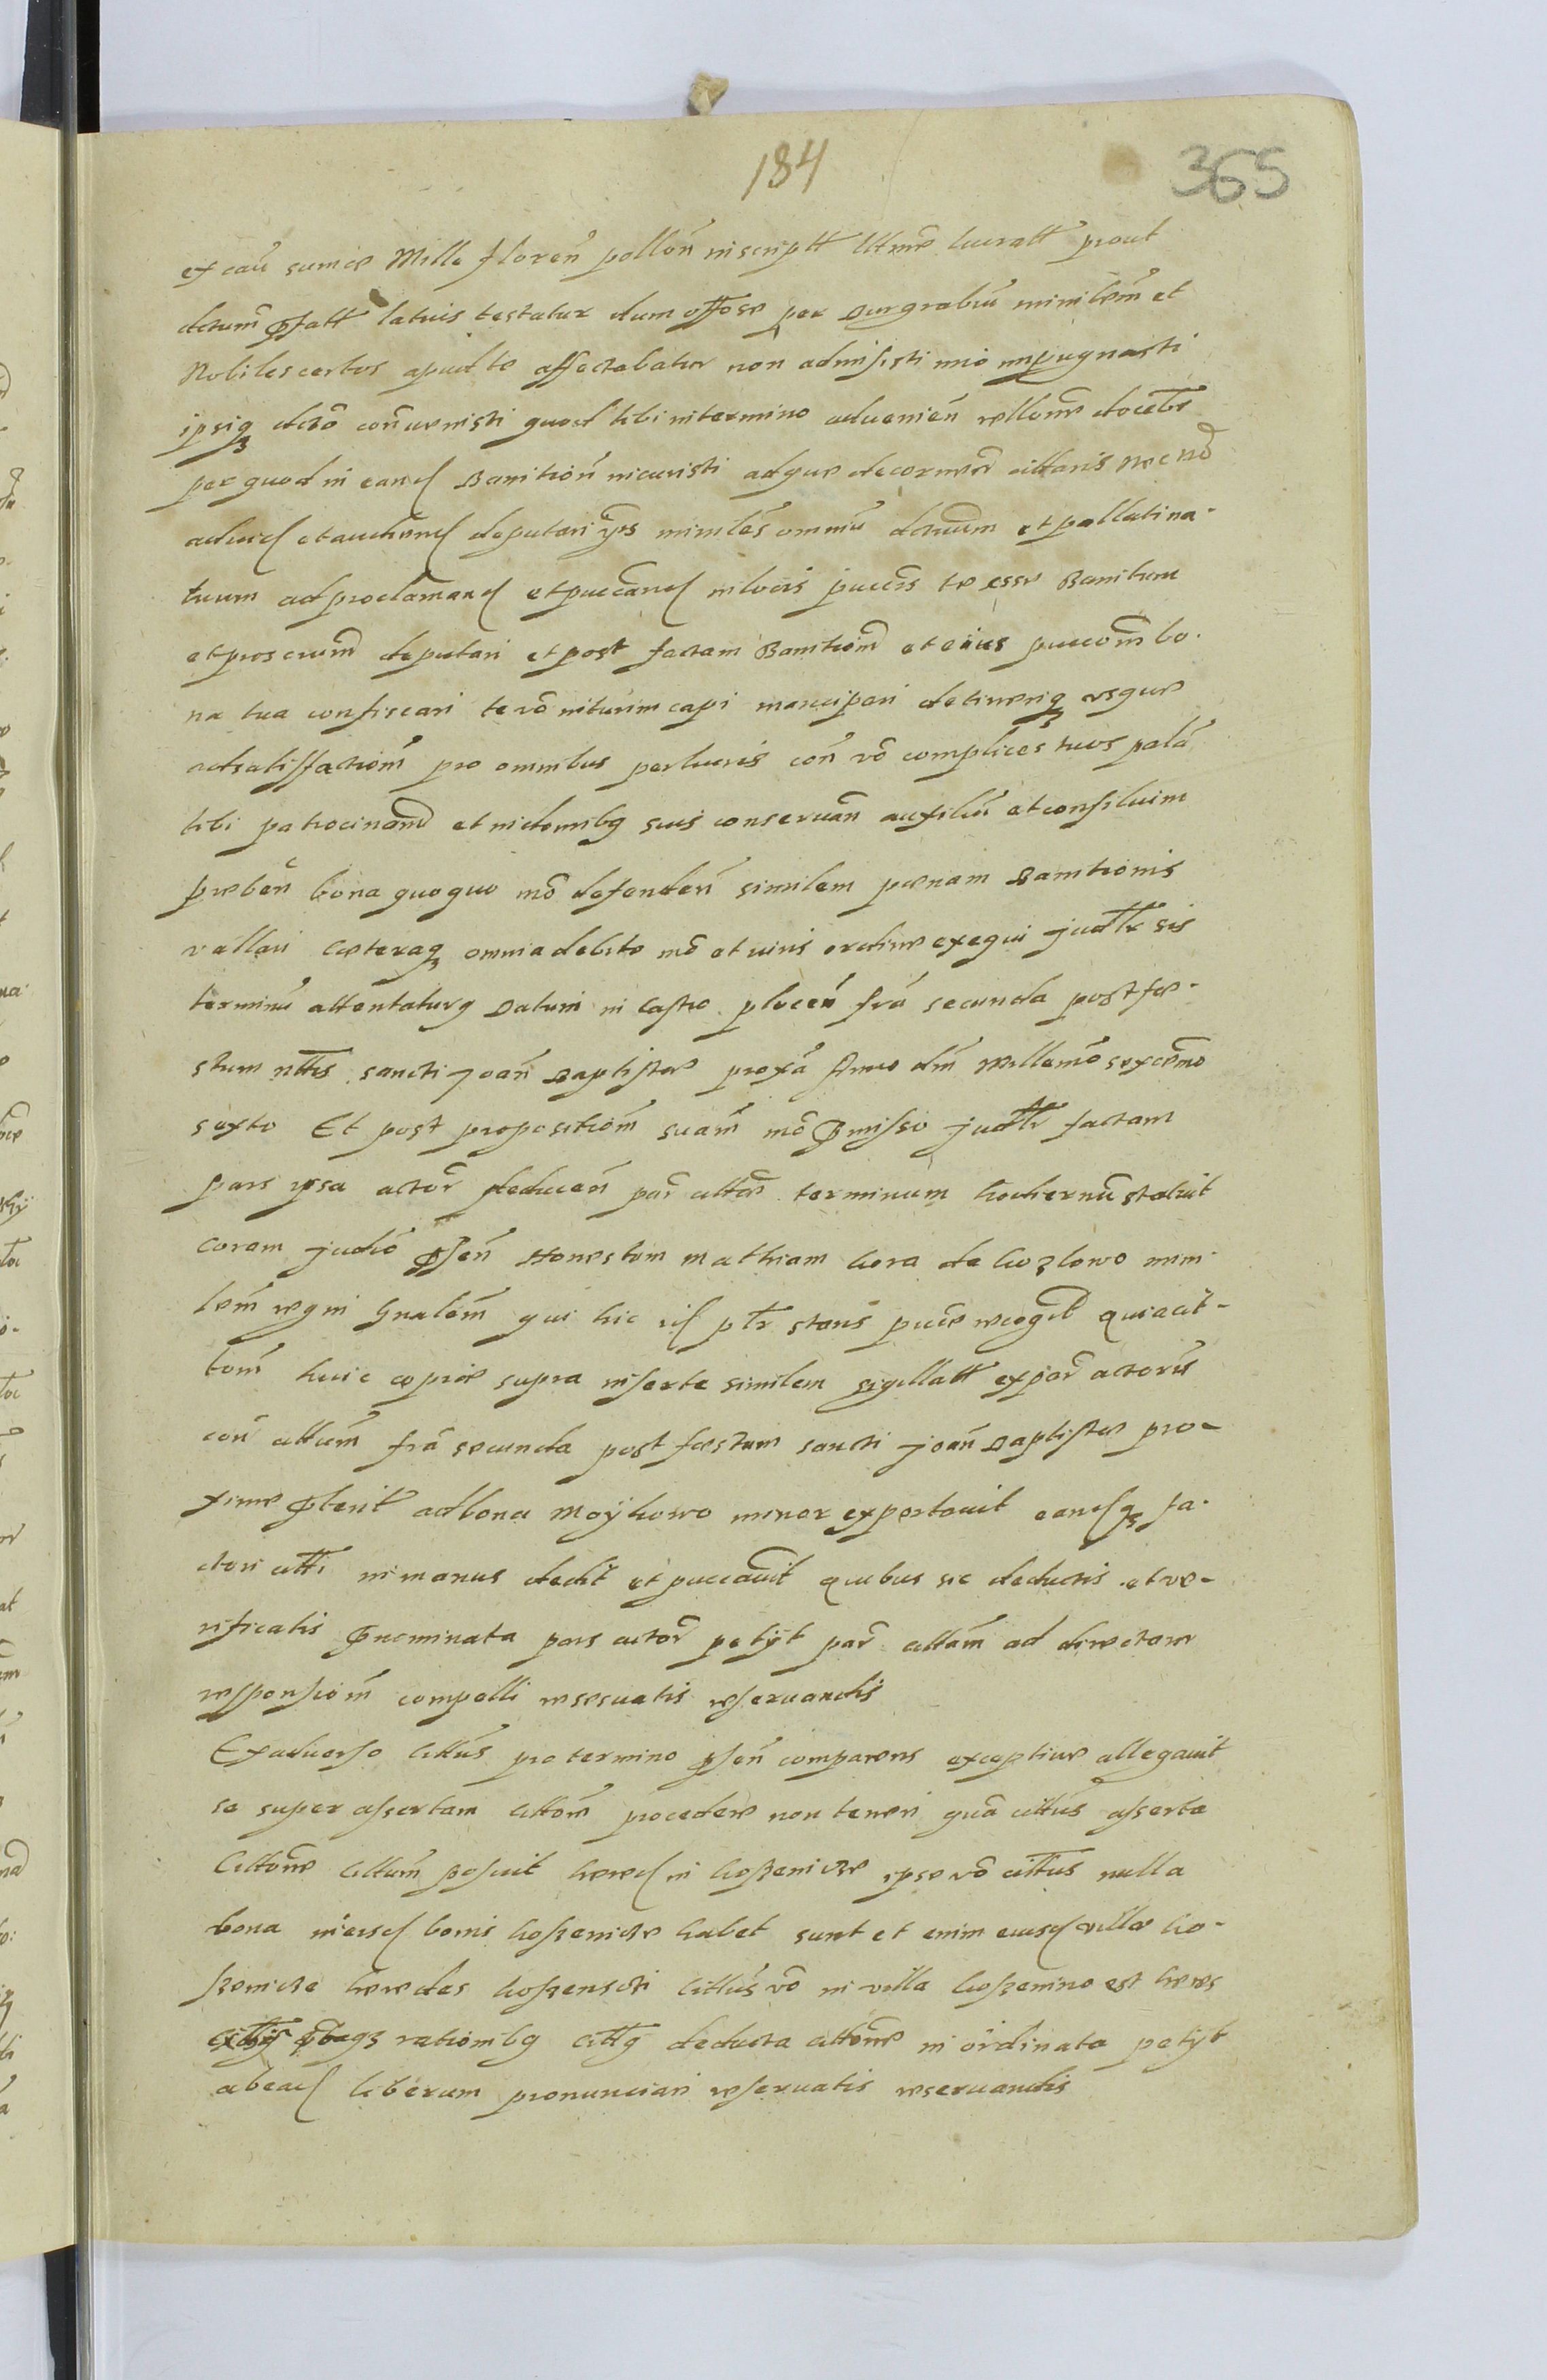 184
365
ex cau sumæ Mille floren pollon inscriptt littme lucratt prout
dcrum pfatt latius testatur dum offose per Burgrabiu minilem et
Nobiles certos apud te affectabatur non admisisti imo impugnasti
ipsiq dcto convenisti quod tibi in termino advenien rellone docebr
per quod in eand Banition incuristi ad quæ decernen citaris Necno
ad eund et audiend deputari yrs miniles omniu dcruum et pallatina-
tuum ad proclamand et puccand in locis puccis te esse Banitum
et proscrum deputari et post factam Banitiom et eius puccom bo-
na tua confiscari te vo in turim capi mancipari detineriq usque
ad satisfactiom pro omnibus perlucris con vo complices tuos pala
tibi patrocinand et in domibq suis conservan auxiliu et consilium
præben bona quoquo mo defenden similem pœnam Banitionis
vallari cæteraq omnia debito mo et iuris ordine exequi judtr sis
terminu attentaturq Datum in Castro plocen fra secunda post fe-
stum nttis sancti Joan Baptistæ proxa Anno dni Millemo sexcemo
sexto Et post propositiom suam mo pmisso judtr factam
pars ipsa actor deducen par cittæ terminum hodiernu statuit
coram judio psen Honestum Mathiam kora de kozlowo mini-
lem regni gnalem qui hic id ptr stans puce recogt quia cit-
tom huic copiæ supra inserte similem sigillatt ex par actoris
con cittum fra secunda post festum sancti Joan Baptistæ pro-
xime pterit ad bona Maykowo minor exportavit eandq fa-
ctori citti in manus dedit et puccavit quibus sic deductis et ve-
rificatis pnominata pars actor petÿt par cittam ad directam
responsiom compelli reservatis reservandis
Ex adverso cittus pro termino psen comparens exceptive allegavit
se super assertam cittom procedere non teneri qua cittus asserta
cittone cittum posuit hæred in kossenicze ipse vo cittus nulla
bona in eisd bonis kossenicze habet sunt et enim eiusd villæ ko-
szenicze hæredes koszensczi cittus vo in villa koszenino est hæres
ptaq rationibq cittq deducta cittone inordinata petÿt
ab ead liberum pronunciari reservatis reservandis